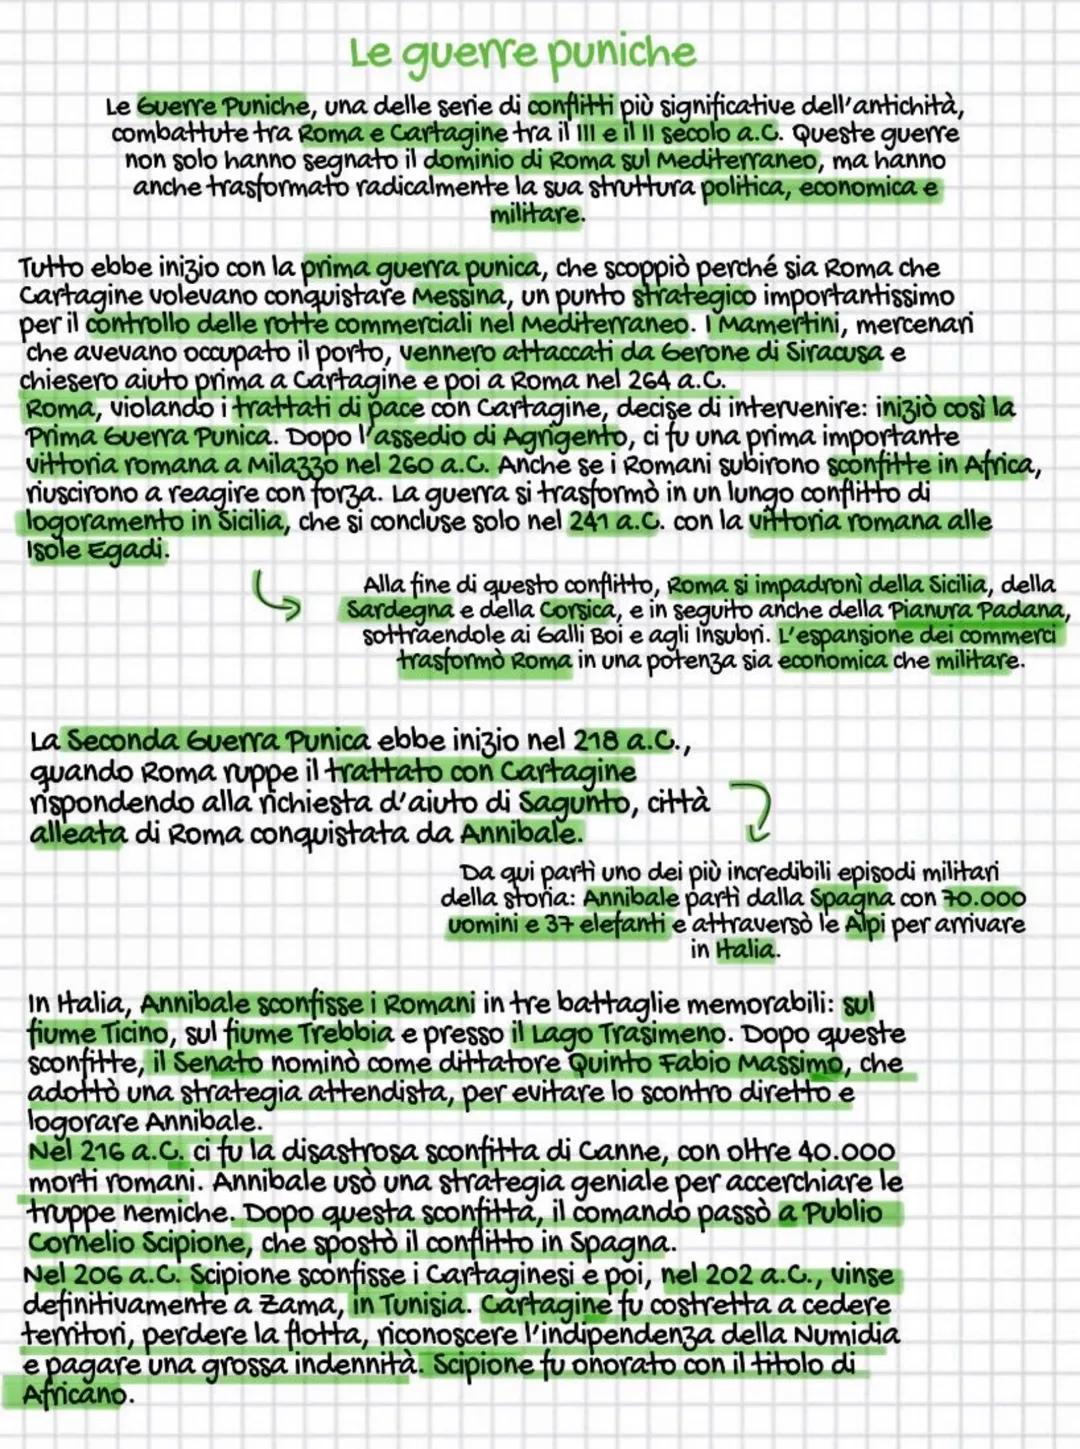 Le guerre puniche
Le Guerre Puniche, una delle serie di conflitti più significative dell'antichità,
combattute tra Roma e Cartagine tra il III e il II secolo a.C. Queste guerre
non solo hanno segnato il dominio di Roma sul Mediterraneo, ma hanno
anche trasformato radicalmente la sua struttura politica, economica e
militare.
Tutto ebbe inizio con la prima guerra punica, che scoppiò perché sia Roma che
Cartagine volevano conquistare Messina, un punto strategico importantissimo
per il controllo delle rotte commerciali nel Mediterraneo. I Mamertini, mercenari
che avevano occupato il porto, vennero attaccati da Gerone di Siracusa e
chiesero aiuto prima a Cartagine e poi a Roma nel 264 a.C.
Roma, violando i trattati di pace con Cartagine, decise di intervenire: iniziò così la
Prima Guerra Punica. Dopo l'assedio di Agrigento, ci fu una prima importante
vittoria romana a Milazzo nel 260 a.C. Anche se i Romani subirono sconfitte in Africa,
riuscirono a reagire con forza. La guerra si trasformò in un lungo conflitto di
logoramento in Sicilia, che si concluse solo nel 241 a.C. con la vittoria romana alle
Isole Egadi.
Alla fine di questo conflitto, Roma si impadronì della Sicilia, della
Sardegna e della Corsica, e in seguito anche della Pianura Padana,
sottraendole ai Galli Boi e agli Insubri. L'espansione dei commerci
trasformò Roma in una potenza sia economica che militare.
La Seconda Guerra Punica ebbe inizio nel 218 a.C.,
quando Roma ruppe il trattato con Cartagine
rispondendo alla richiesta d'aiuto di Sagunto, città
alleata di Roma conquistata da Annibale.
Da qui partì uno dei più incredibili episodi militari
della storia: Annibale partì dalla Spagna con 70.000
uomini e 37 elefanti e attraversò le Alpi per arrivare
in Italia.
In Italia, Annibale sconfisse i Romani in tre battaglie memorabili: sul
fiume Ticino, sul fiume Trebbia e presso il Lago Trasimeno. Dopo queste
sconfitte, il Senato nominò come dittatore Quinto Fabio Massimo, che
adottò una strategia attendista, per evitare lo scontro diretto e
logorare Annibale.
Nel 216 a.C. ci fu la disastrosa sconfitta di Canne, con oltre 40.000
morti romani. Annibale usò una strategia geniale per accerchiare le
truppe nemiche. Dopo questa sconfitta, il comando passò a Publio
Cornelio Scipione, che spostò il conflitto in Spagna.
Nel 206 a.C. Scipione sconfisse i Cartaginesi e poi, nel 202 a.C., vinse
definitivamente a Zama, in Tunisia. Cartagine fu costretta a cedere
territori, perdere la flotta, riconoscere l'indipendenza della Numidia
e pagare una grossa indennità. Scipione fu onorato con il titolo di
Africano.